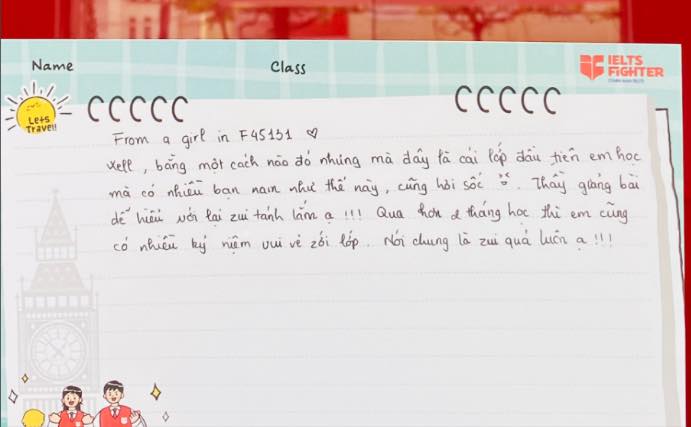 Name
Class
IELTS
FIGHTER
Let's
Travel!
From a girl in F45131 ♡
Well, bằng một cách nào đó nhưng mà đây là cái lớp đầu tiên em học
mà có nhiều bạn nam như thế này, cũng hơi sốc. Thầy giảng bài
dễ hiểu với lại zui tánh lắm ạ !!! Qua hơn 2 tháng học thì em cũng
có nhiều kỷ niệm vui vẻ zới lớp. Nói chung là zui quá luôn ạ !!!